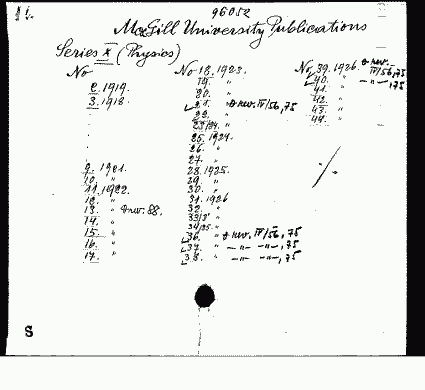 96052
McGill University Publications
Series X (Physics)
No
2. 1919.
3. 1918.
9. 1921.
10. "
11. 1922.
12. "
13. "
14. "
15. "
16. "
17. "
No 18. 1923.
19. "
20. "
21. " rev. IV/56, 75
22. "
23/24. "
25. 1924.
26. "
27. "
28. 1925.
29. "
30. "
31. 1926
32. "
33/ "
34/35. "
36. " rev. IV/56, 75
37. " -"- -"-, 75
38. " -"- -"-, 75
No. 39. 1926. rev. IV/56, 75
40. " -"-, 75
41. "
42. "
43. "
44. "
S